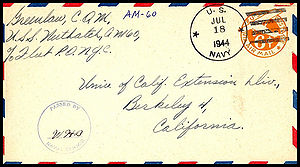 Greenlaw, C.A.M.
AM-60
U.S.S. Nuthatch, AM60,
℅ Flt P.O. N.Y.C.
U. S.
JUL
18
1944
NAVY
6¢
AIR MAIL
Univ of Calif. Extension Div.,
Berkeley 4,
California.
PASSED BY